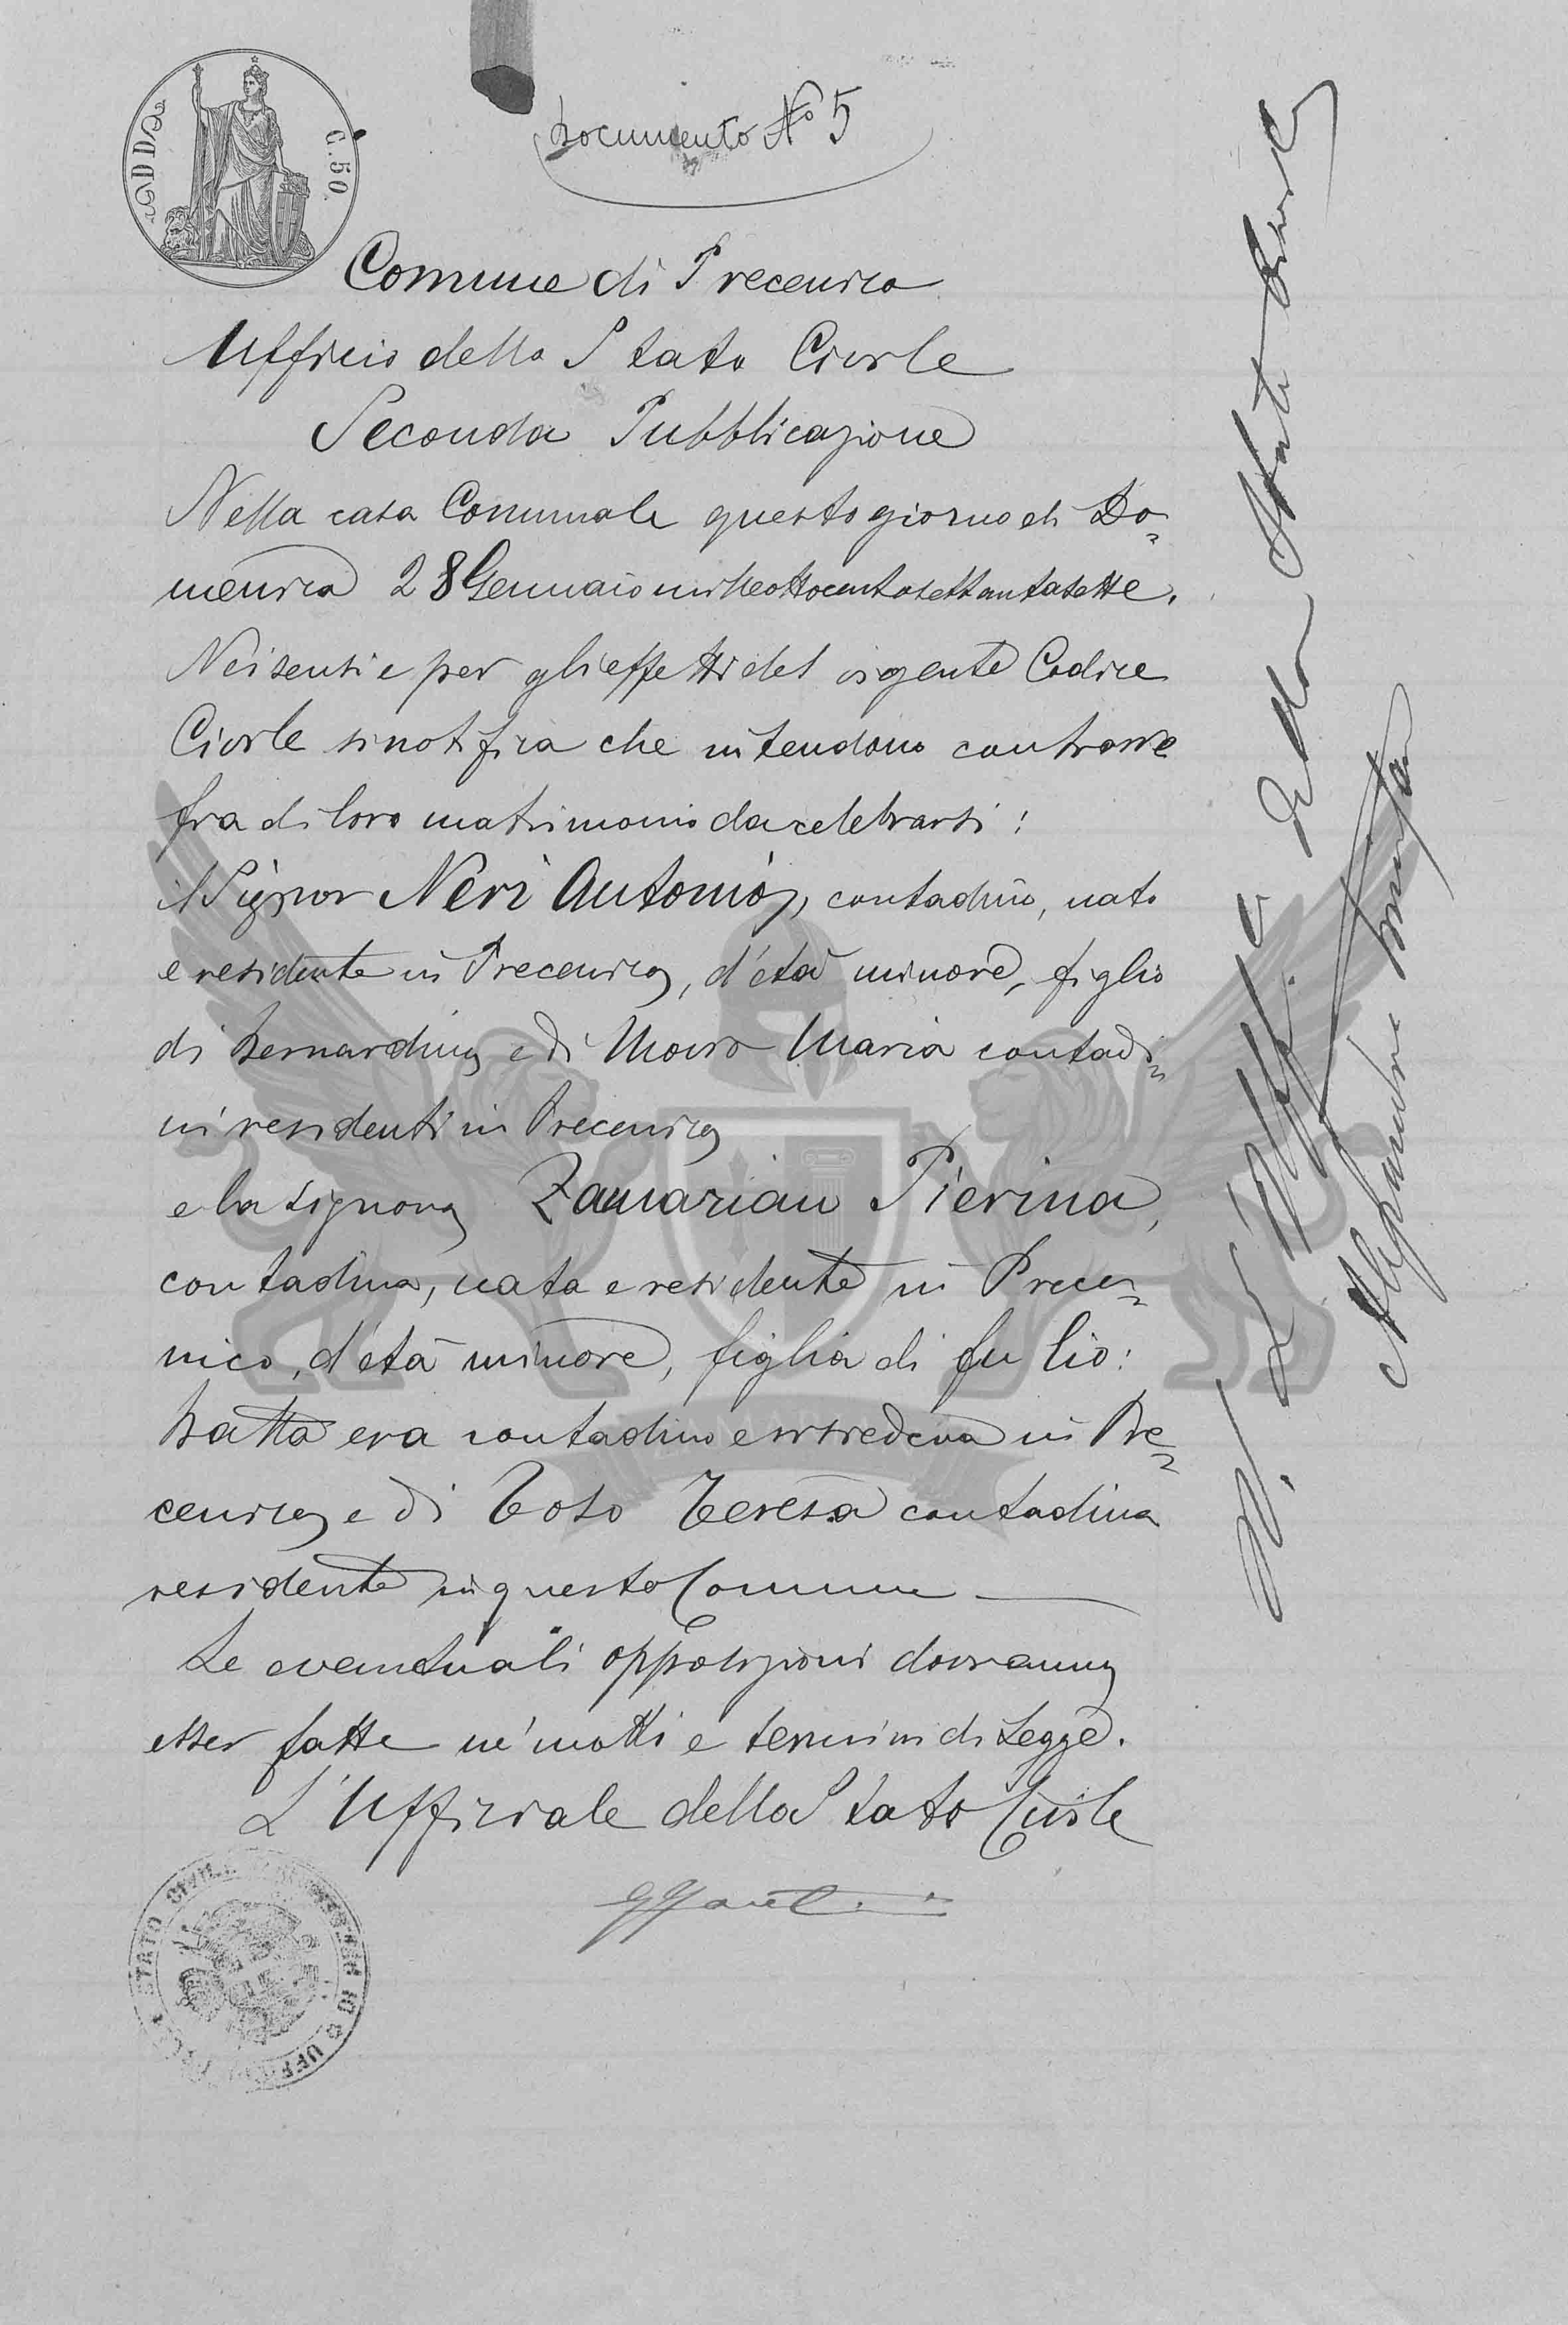 C. 50
Documento No 5
Comune di Precenico
Ufficio dello Stato Civile
Seconda Pubblicazione
Nella casa Comunale questo giorno di Do=
menica 28 Gennaio milleottocentosettantasette.
Nei sensi e per gli effetti del vigente Codice
Civile si notifica che intendono contrarre
fra di loro matrimonio da celebrarsi:
il Signor Neri Antonio, contadino, nato
e residente in Precenico, d'età minore, figlio
di Bernardino e di Moiro Maria contadi=
ni residenti in Precenico
e la signora Zamarian Pierina,
contadina, nata e residente in Prece=
nico, d'età minore, figlia di fu Gio:
Batta era contadino e risiedeva in Pre=
cenico e di Toso Teresa contadina
residente in questo Comune
Le eventuali opposizioni dovranno
esser fatte ne' modi e termini di Legge.
L'Uffiziale dello Stato Civile
STATO CIVILE
UFF
V. L'Uff. dello Stato Civile
Alessandro